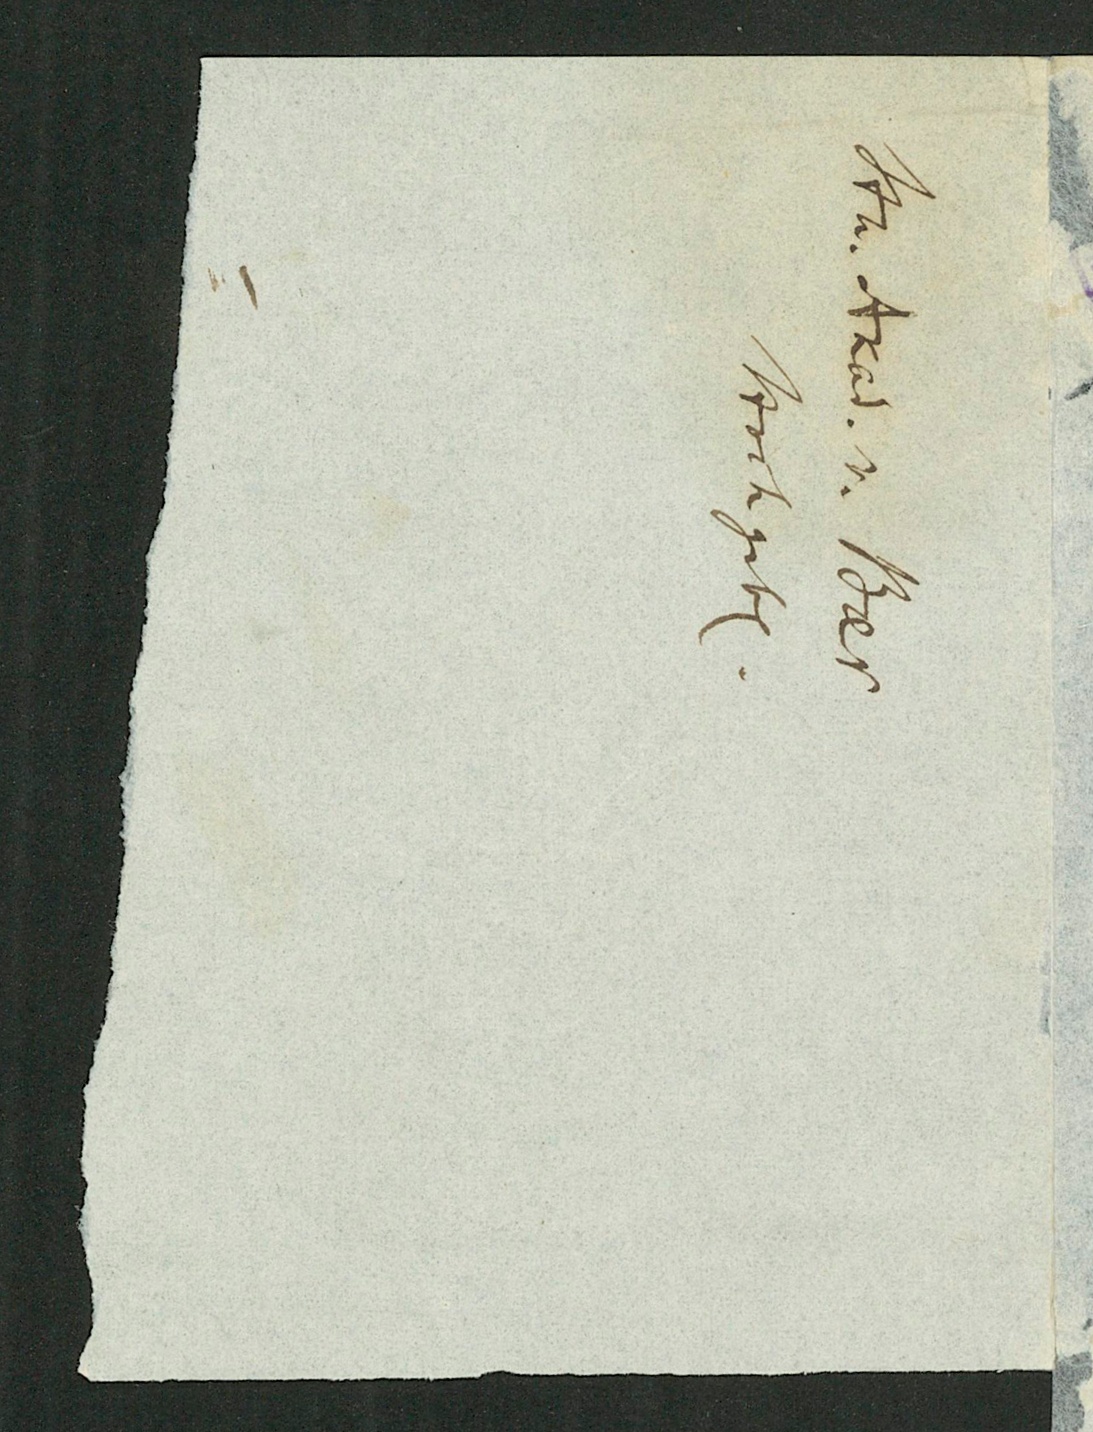 Hn. Akad. v. Baer
Hochgeb.